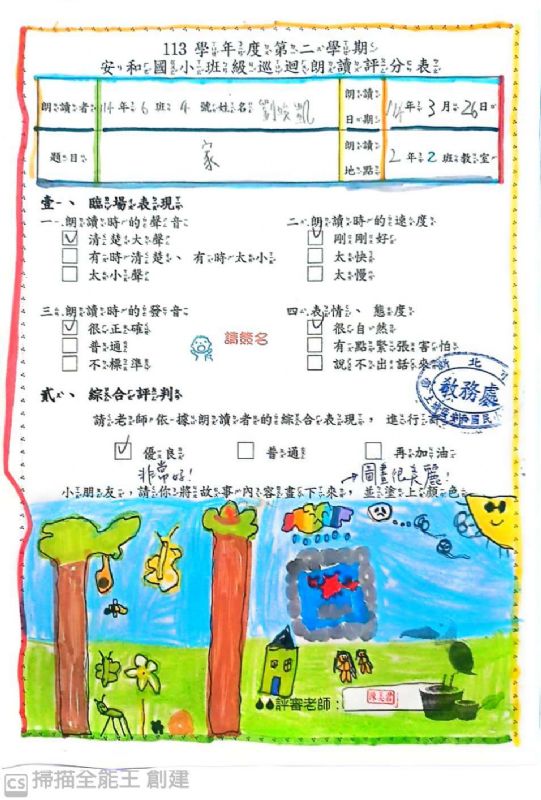 113 學年度第二學期
安和國小班級巡迴朗讀評分表
朗讀者 114年6班4號姓名劉峻凱 朗讀日期 114年3月26日
題目 家 朗讀地點 2年2班教室
壹、臨場表現
一、朗讀時的聲音 二、朗讀時的速度
☑ 清楚大聲 ☑ 剛剛好
☐ 有時清楚、有時太小 ☐ 太快
☐ 太小聲 ☐ 太慢
三、朗讀時的發音 四、表情、態度
☑ 很正確 ☑ 很自然
☐ 普通 ☐ 有點緊張害怕
☐ 不標準 ☐ 說不出話來
請簽名
北
教務處
貳、綜合評判
請老師依據朗讀者的綜合表現,進行
☑ 優良 ☐ 普通 ☐ 再加油
非常好! →圖畫很美麗!
小朋友,請你將故事內容畫下來,並塗上顏色
評審老師:
CS 掃描全能王 創建